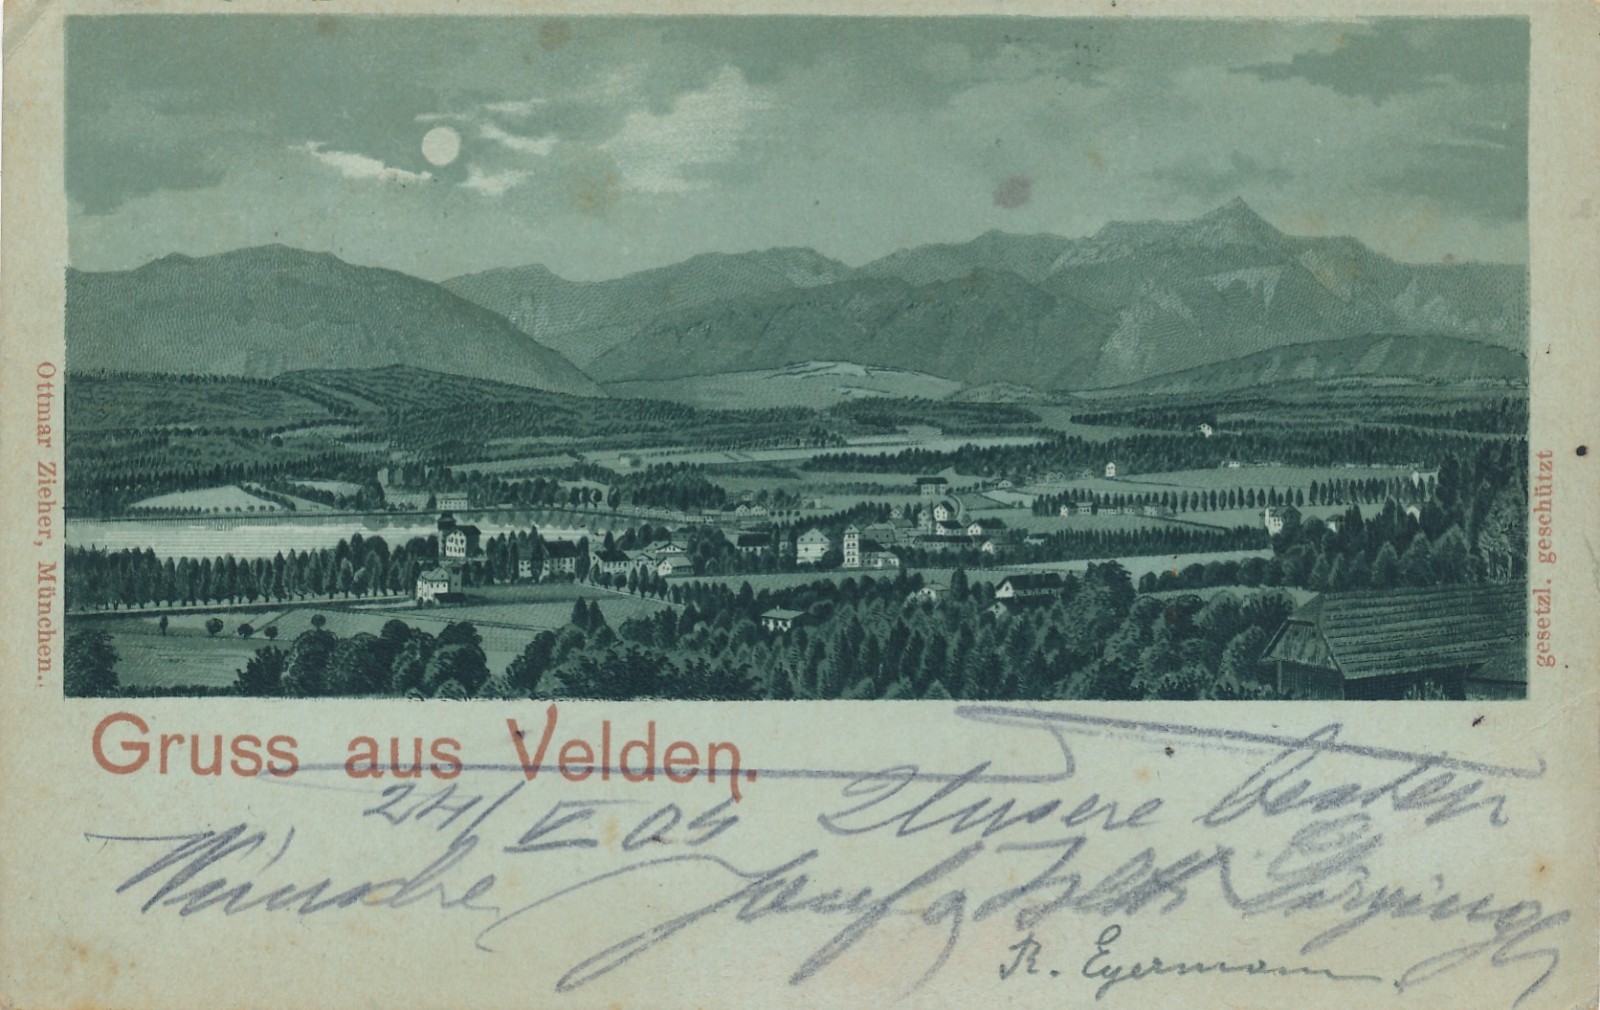 Ottmar Zieher, München.
gesetzl. geschützt
Gruss aus Velden.
24/V 04 Unsere besten
Wünsche Josef
R. Eyermann